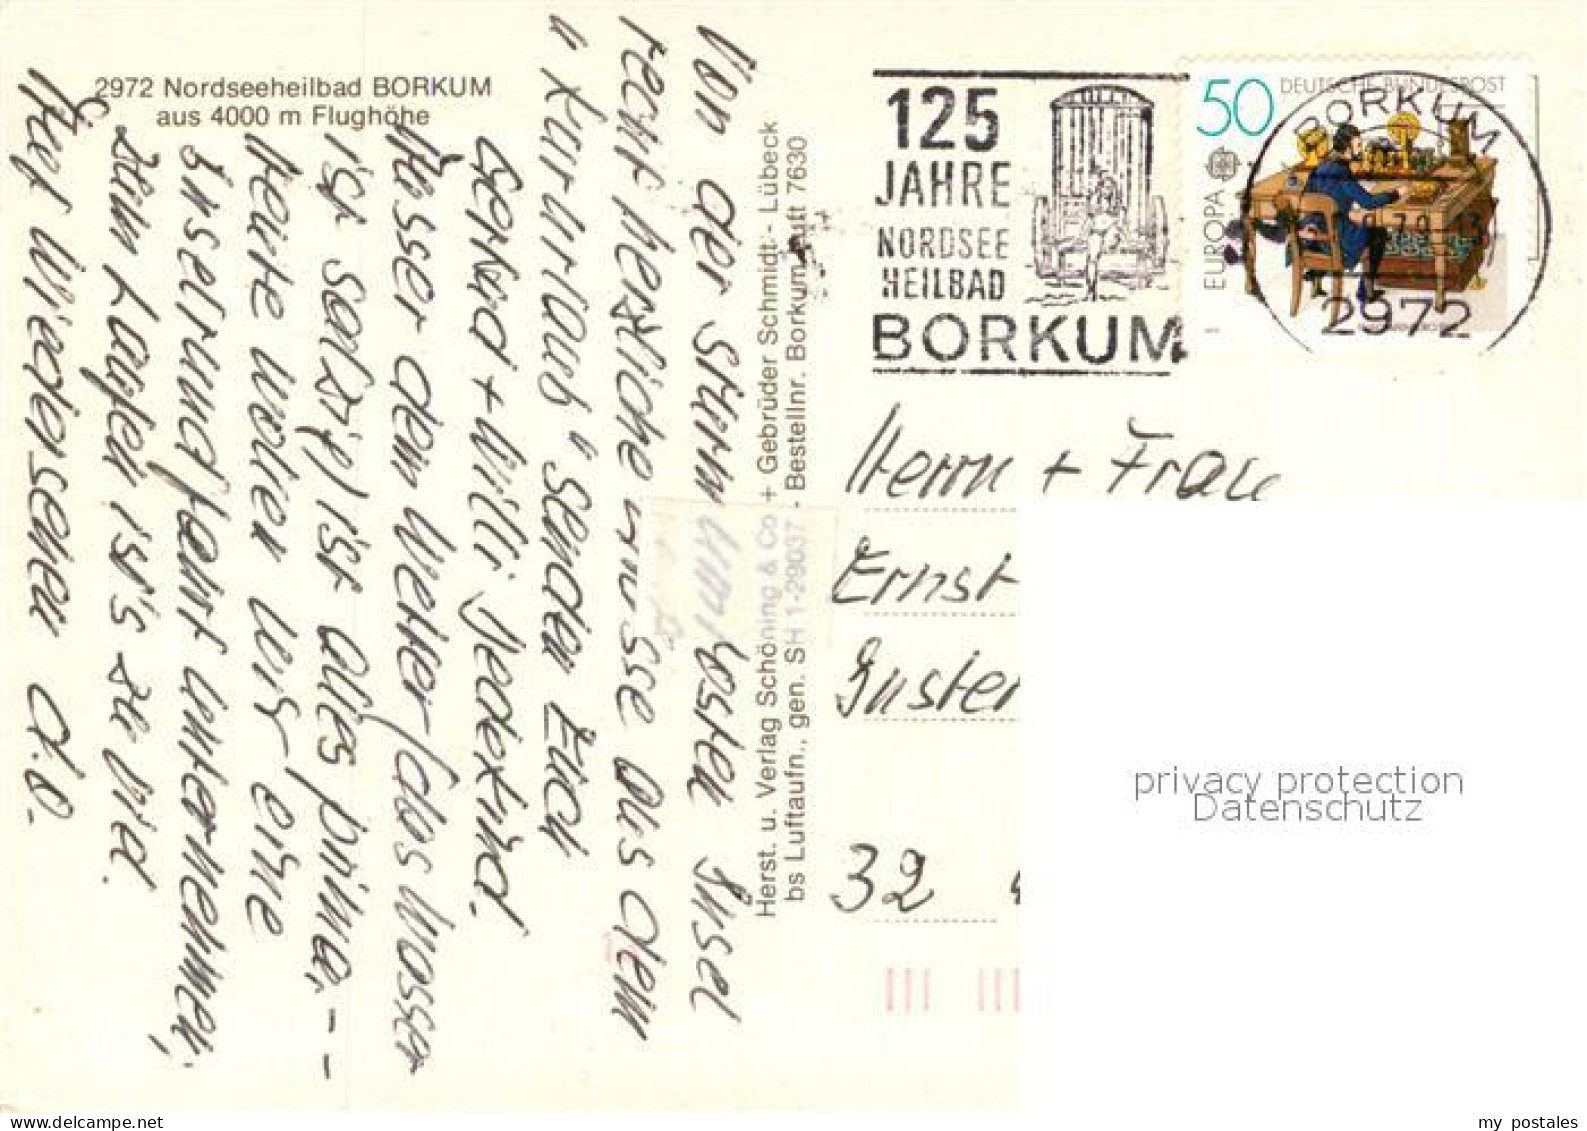 2972 Nordseeheilbad BORKUM
aus 4000 m Flughöhe
Von der sturmumtosten Insel
recht herzliche Grüsse aus dem
"Kururlaub" senden Euch
Gerhard + Willi
Ausser dem Wetter (das Wasser
ist salzig) ist alles prima, - -
Heute wollen wir eine
Inselrundfahrt unternehmen,
zum Laufen is's zu viel.
Auf Wiedersehen d.O.
Herst. u. Verlag Schöning & Co + Gebrüder Schmidt - Lübeck
bs Luftaufn., gen. SH 1-29037 - Bestellnr. Borkum Luft 7630
125
JAHRE
NORDSEE
HEILBAD
BORKUM
50 DEUTSCHE BUNDESPOST
EUROPA
BORKUM
2972
Herrn + Frau
Ernst
Guster
32
privacy protection
Datenschutz
my postales